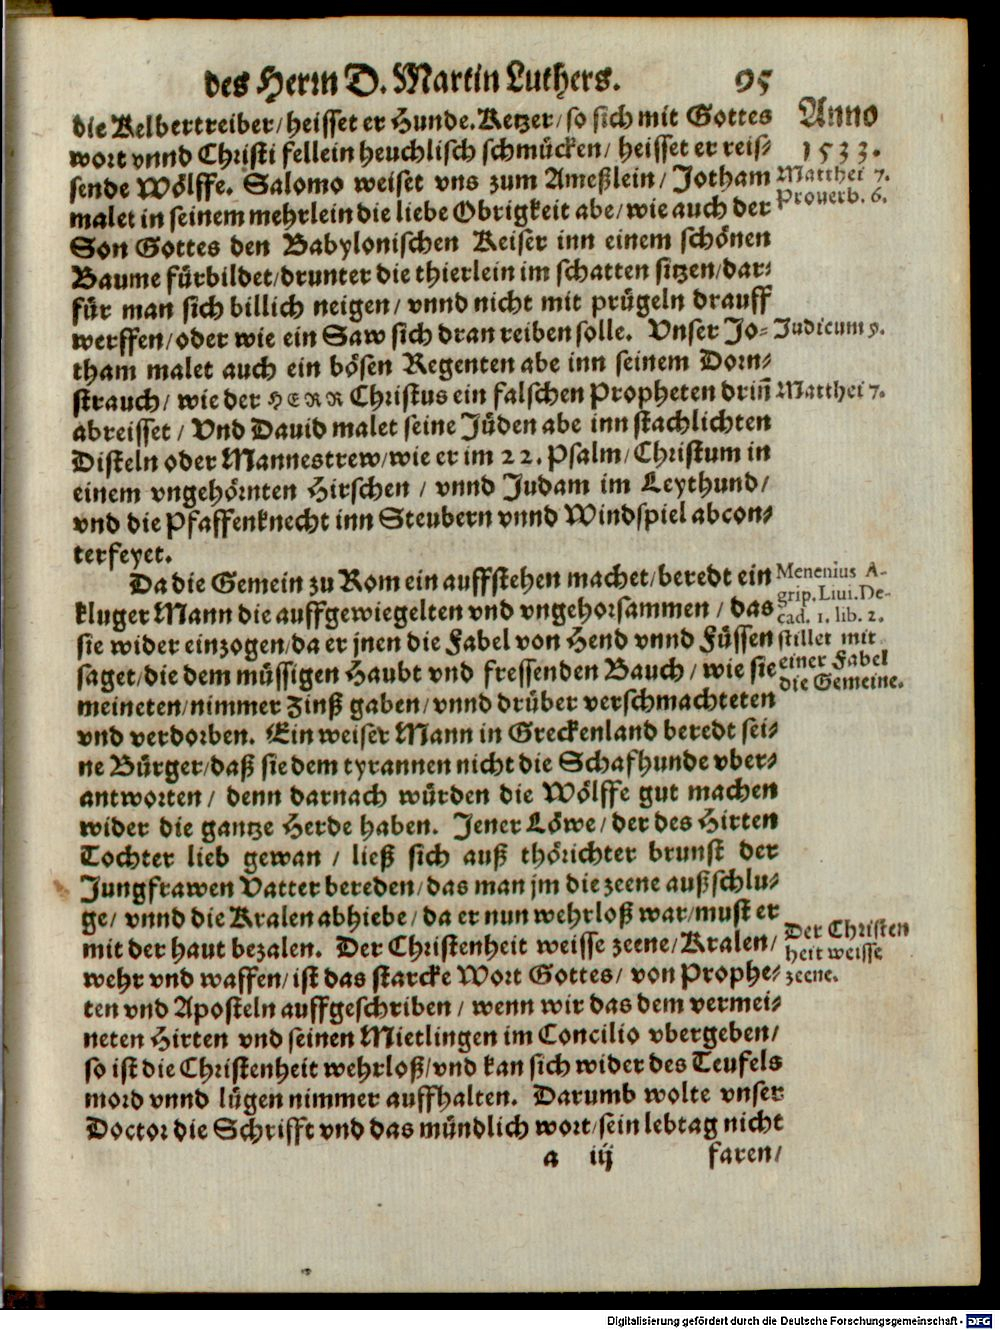 des Herrn D. Martin Luthers. 95
Anno
1533.
die Kelbertreiber/heisset er Hunde. Ketzer/so sich mit Gottes
wort vnnd Christi fellein heuchlisch schmücken/ heisset er reis-
sende Wölffe. Salomo weiset vns zum Ameßlein/ Jotham
Matthei 7.
Prouerb. 6.
malet in seinem mehrlein die liebe Obrigkeit abe/wie auch der
Son Gottes den Babylonischen Keiser inn einem schönen
Baume fürbildet/drunter die thierlein im schatten sitzen/dar-
für man sich billich neigen/ vnnd nicht mit prügeln drauff
werffen/oder wie ein Saw sich dran reiben solle. Vnser Jo-
Judicum 9.
tham malet auch ein bösen Regenten abe inn seinem Dorn-
strauch/ wie der HERR Christus ein falschen Propheten driñ
Matthei 7.
abreisset / Vnd Dauid malet seine Jüden abe inn stachlichten
Disteln oder Mannestrew/wie er im 22. Psalm/Christum in
einem vngehörnten Hirschen / vnnd Judam im Leythund/
vnd die Pfaffenknecht inn Steubern vnnd Windspiel abcon-
terfeyet.
Da die Gemein zu Rom ein auffstehen machet/beredt ein
Menenius A-
grip. Liui. De-
cad. 1. lib. 2.
stillet mit
einer Fabel
die Gemeine.
kluger Mann die auffgewiegelten vnd vngehorsammen / das
sie wider einzogen/da er jnen die Fabel von Hend vnnd Füssen
saget/die dem müssigen Haubt vnd fressenden Bauch / wie sie
meineten/nimmer Zinß gaben/vnnd drüber verschmachteten
vnd verdorben. Ein weiser Mann in Greckenland beredt sei-
ne Bürger/daß sie dem tyrannen nicht die Schafhunde vber-
antworten/ denn darnach würden die Wölffe gut machen
wider die gantze Herde haben. Jener Löwe/der des Hirten
Tochter lieb gewan / ließ sich auß thörichter brunst der
Jungfrawen Vatter bereden/das man jm die zeene außschlu-
ge/ vnnd die Kralen abhiebe/da er nun wehrloß war/must er
mit der haut bezalen. Der Christenheit weisse zeene/Kralen/
Der Christen
heit weisse
zeene.
wehr vnd waffen/ist das starcke Wort Gottes/ von Prophe-
ten vnd Aposteln auffgeschriben / wenn wir das dem vermei-
neten Hirten vnd seinen Mietlingen im Concilio vbergeben/
so ist die Christenheit wehrloß/vnd kan sich wider des Teufels
mord vnnd lügen nimmer auffhalten. Darumb wolte vnser
Doctor die Schrifft vnd das mündlich wort/sein lebtag nicht
a iij faren/
Digitalisierung gefördert durch die Deutsche Forschungsgemeinschaft - DFG